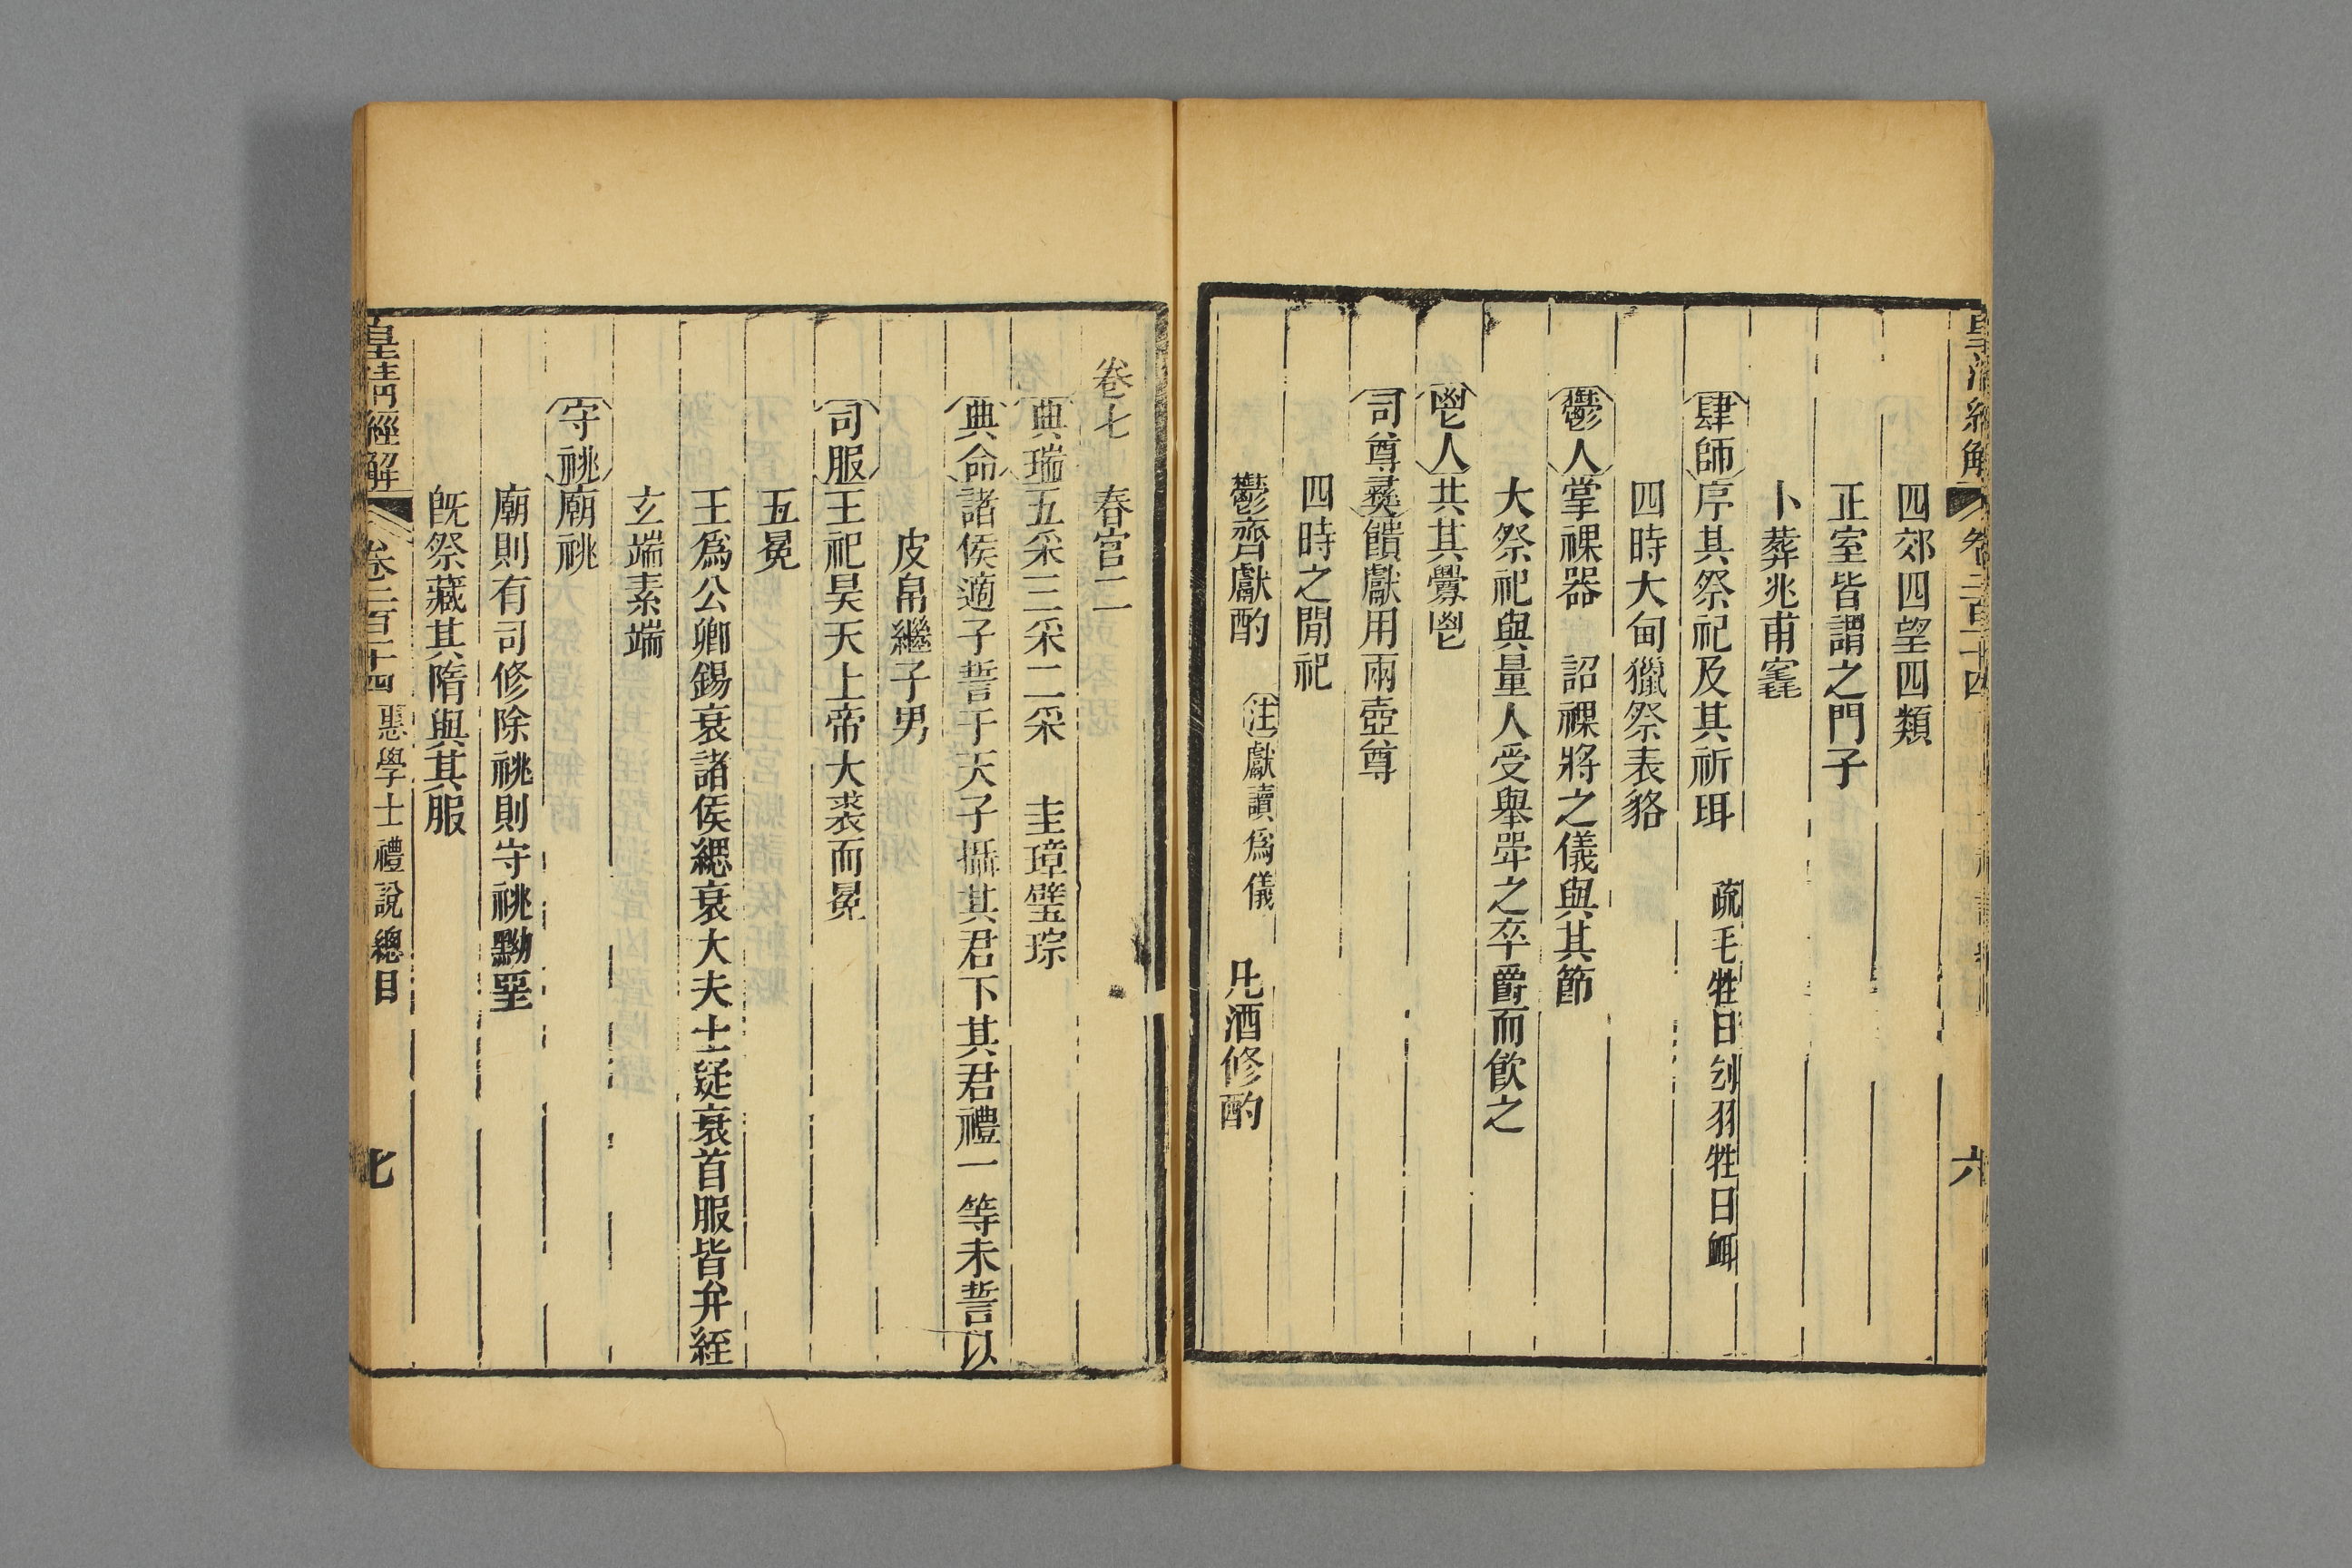 四郊四望四類
正室皆謂之門子
卜葬兆甫竁
肆師序其祭祀及其祈珥 疏毛牲曰刉羽牲曰衈
四時大甸獵祭表貉
鬱人掌祼器 詔祼將之儀與其節
大祭祀與量人受舉斝之卒爵而飲之
鬯人共其釁鬯
司尊彝饋獻用兩壺尊
四時之閒祀
鬱齊獻酌 注獻讀爲儀 凡酒修酌
卷七 春官二
典瑞五采三采二采 圭璋璧琮
典命諸侯適子誓于天子攝其君下其君禮一等未誓以
皮帛繼子男
司服王祀昊天上帝大裘而冕
五冕
王爲公卿錫衰諸侯緦衰大夫士疑衰首服皆弁絰
玄端素端
守祧廟祧
廟則有司修除祧則守祧黝堊
旣祭藏其隋與其服
皇清經解 卷二百十四 惠學士禮說總目 七